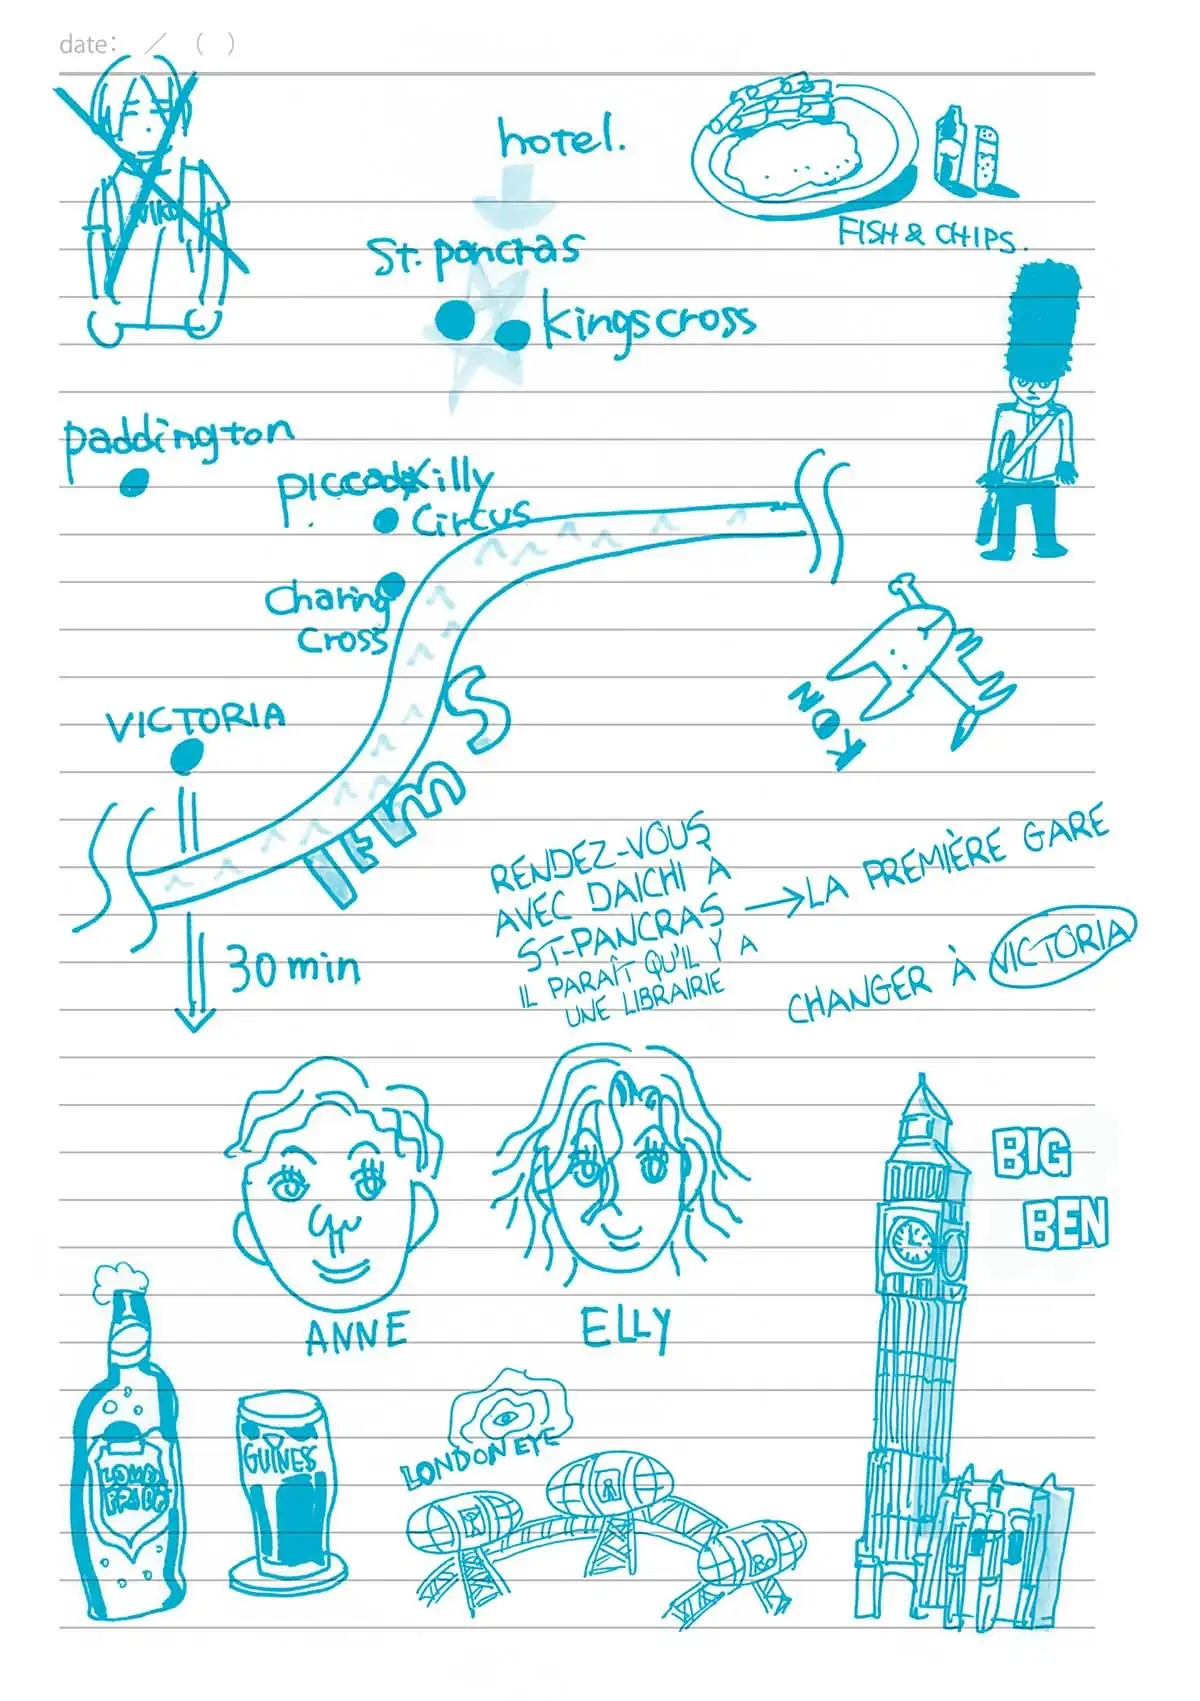 date: / ( )
hotel.
St. pancras
kingscross
FISH & CHIPS.
paddington
piccadilly
Circus
Charing
Cross
VICTORIA
TEMS
KON
30 min
RENDEZ-VOUS
AVEC DAICHI À
ST-PANCRAS
IL PARAÎT QU'IL Y A
UNE LIBRAIRIE
→ LA PREMIÈRE GARE
CHANGER À VICTORIA
ANNE
ELLY
BIG
BEN
GUINESS
LONDON EYE